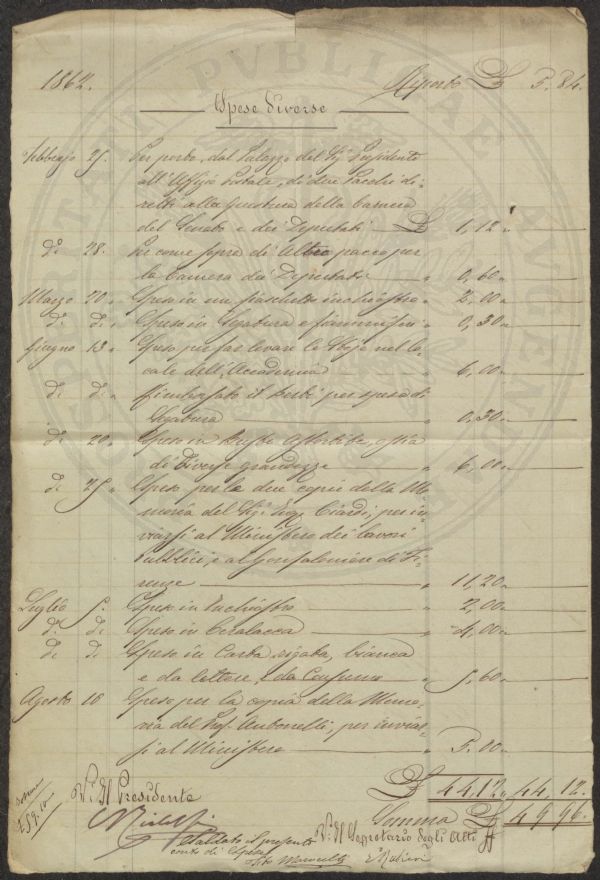 1862. Riporto £ 5.84.
Spese diverse
Febbrajo 25. Per porto, dal Palazzo del Sigr Presidente
all'Uffizio Postale, di due Pacchi di-
retti alla Questura della Camera
del Senato e dei Deputati £ 1,12
do 28. Per come sopra di Altro pacco per
la Camera dei Deputati " 0,60
Marzo 20. Spesi in un fiaschetto inchiostro " 2,00
do do Spesi in Legatura e " 0,30
Giugno 13. Spesi per far levare le Stoje nel lo-
cale dell'Accademia " 6,00
do do per spesa di
Legatura " 0,30
do 20. Spesi in Buste
di Diverse grandezze " 6,00
do 25. Spesi per le due copie della Me-
moria del Sigr Ciardi, per in-
viarsi al Ministero dei lavori
Pubblici, e al Gonfaloniere di Fi-
renze " 11,20
Luglio 5. Spesi in Inchiostro " 2,00
do do Spesi in Ceralacca " 4,00
do do Spesi in Carta rigata, bianca
e da lettere, e da Consumo " 5,60
Agosto 10 Spesi per la copia della Memo-
ria del Prof. Antonelli, per inviar-
si al Ministero " 5.00
£ 44.12 44.12.
Somma £ 49.96.
Vo Il Presidente
Saldato il presente
conto di Spese
Vo Il Segretario degli Atti
PROSPERITATI PVBLICAE AVGENDAE